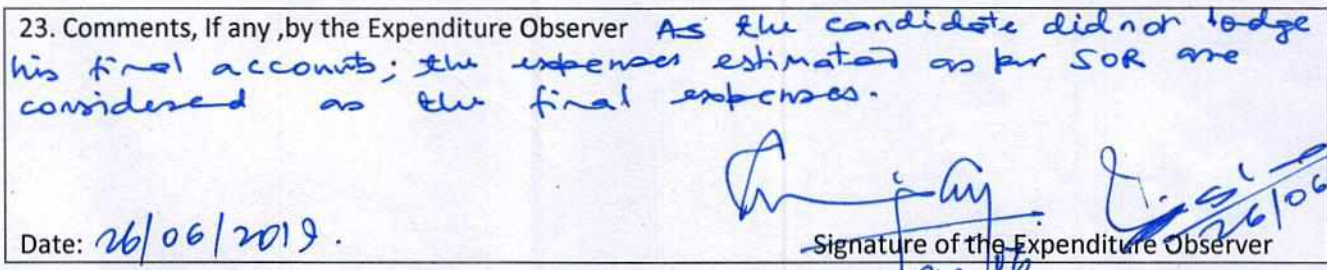 23. Comments, If any ,by the Expenditure Observer As the candidate did not lodge
his final accounts; the expenses estimated as per SOR are
considered as the final expenses.
26/06
Date: 26/06/2019.
Signature of the Expenditure Observer